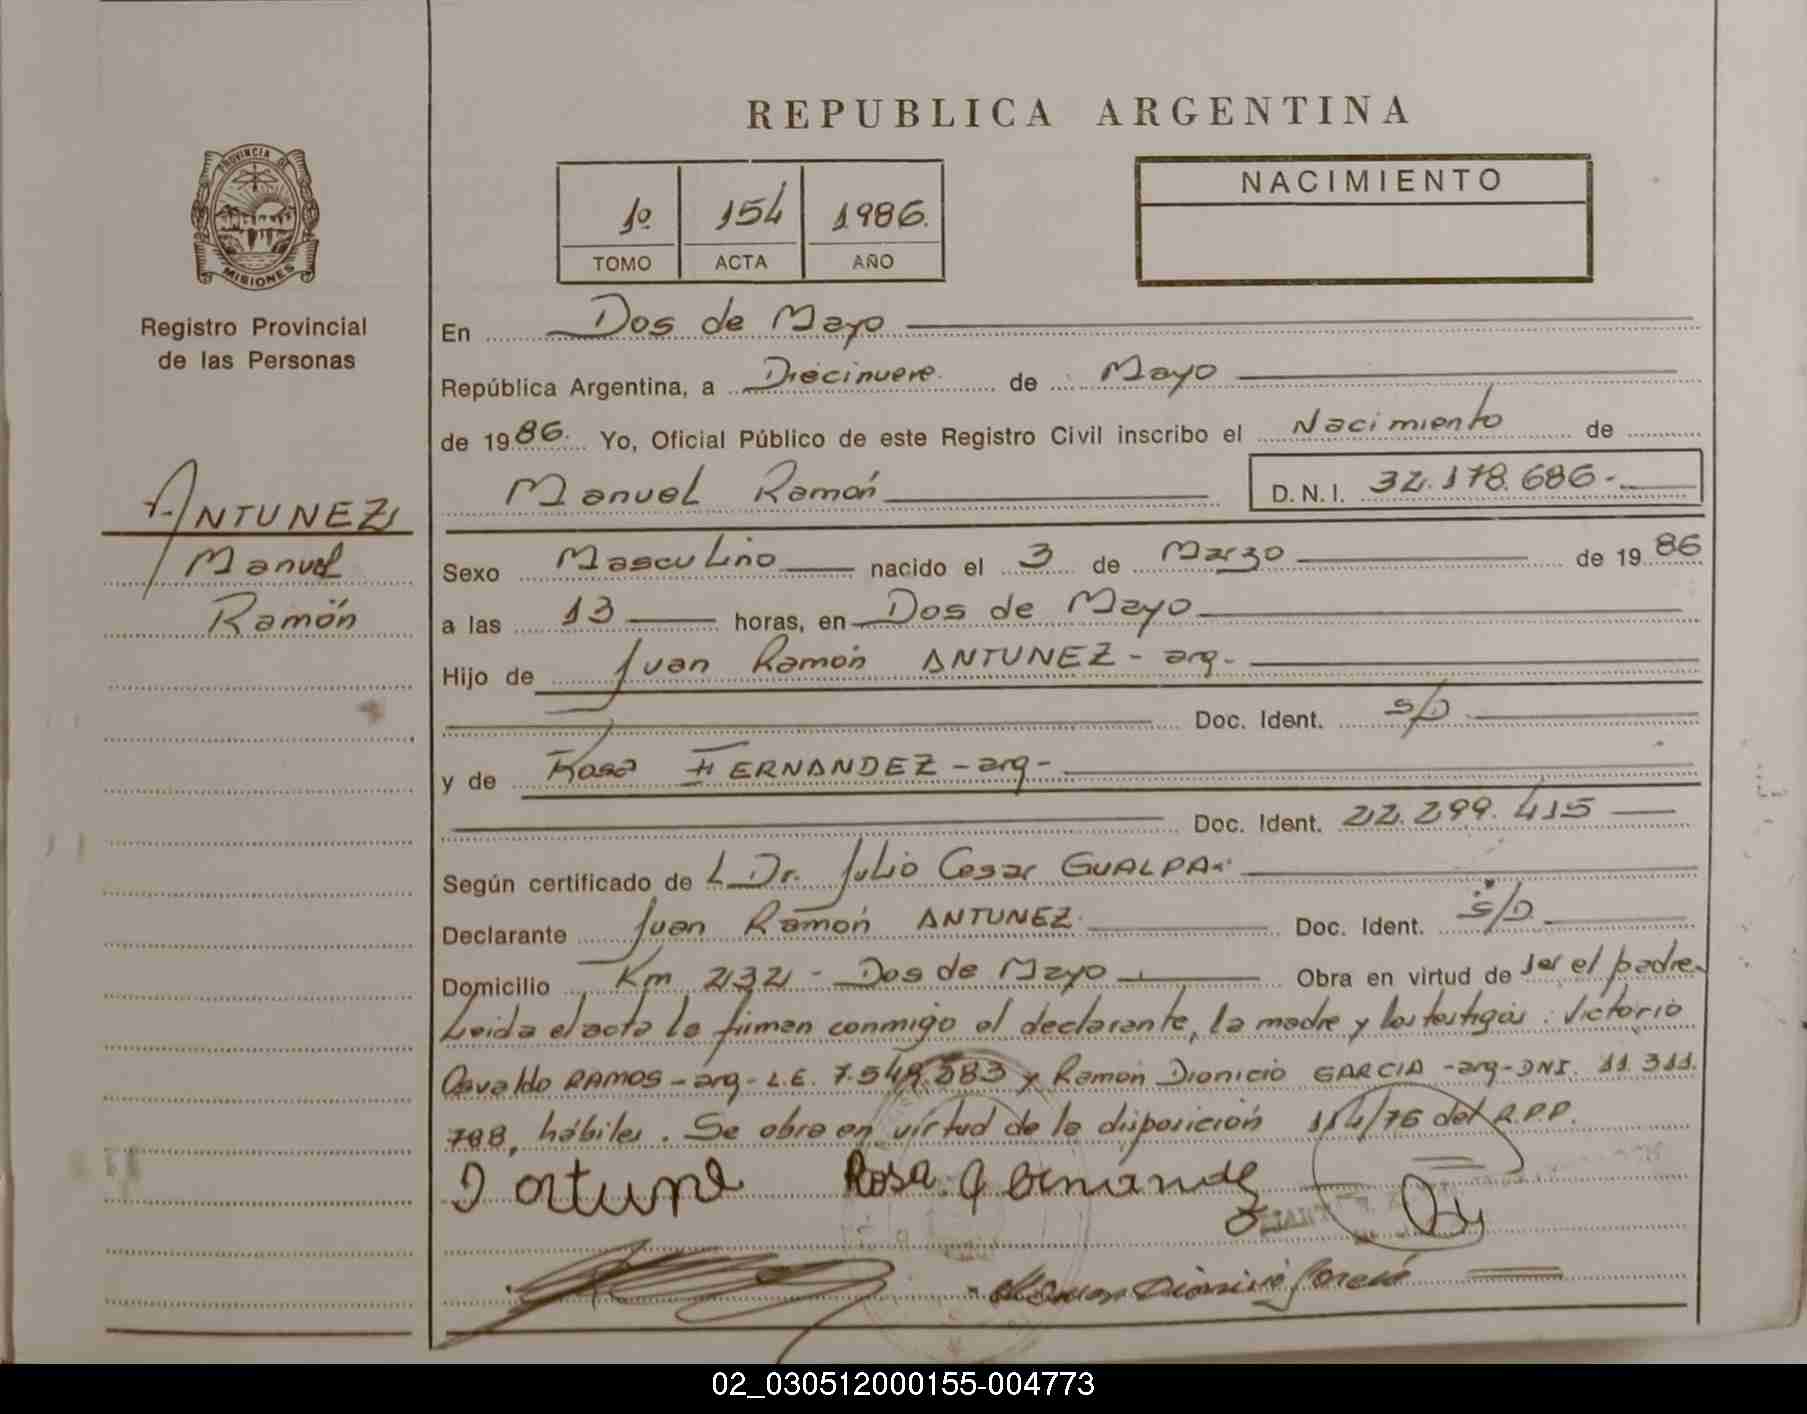 REPUBLICA ARGENTINA
PROVINCIA DE
MISIONES
Registro Provincial
de las Personas
1º 154 1986.
TOMO ACTA AÑO
NACIMIENTO
En Dos de Mayo
República Argentina, a Diecinueve de Mayo
de 1986. Yo, Oficial Público de este Registro Civil inscribo el Nacimiento de
Manuel Ramón D.N.I. 32.178.686.-
ANTUNEZ
Manuel
Ramón
Sexo Masculino nacido el 3 de Marzo de 1986
a las 13 horas, en Dos de Mayo
Hijo de Juan Ramón ANTUNEZ - arg-
Doc. Ident. S/D
y de Rosa FERNANDEZ - arg-
Doc. Ident. 22.299.415
Según certificado de L Dr. Julio Cesar GUALPA.
Declarante Juan Ramón ANTUNEZ. Doc. Ident. S/D.
Domicilio Km 232 - Dos de Mayo Obra en virtud de ser el padre.
Leida el acta la firman conmigo el declarante, la madre y los testigos: Victorio
Osvaldo RAMOS - arg - L.E. 7.549.383 y Ramón Dionicio GARCIA - arg - DNI. 11.311.
798, hábiles. Se obra en virtud de la disposición 114/76 del R.P.P.
Rosa Fernandez
02_030512000155-004773